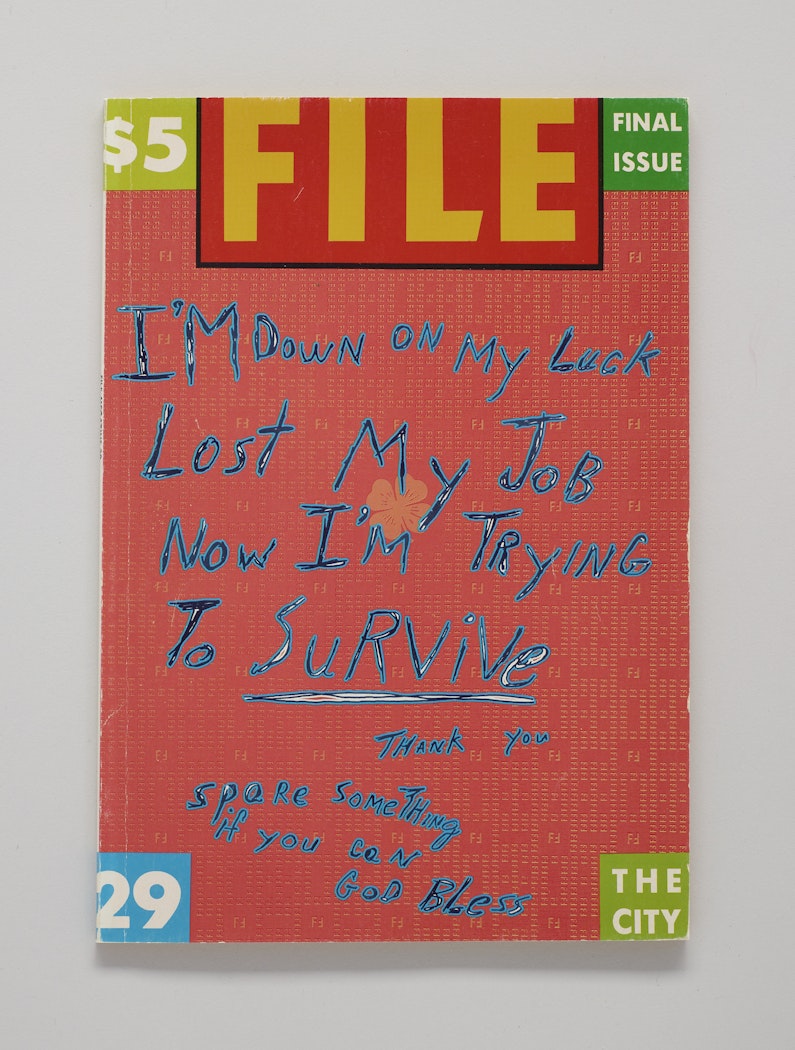 $5
FILE
FINAL
ISSUE
I'M DOWN ON MY LUCK
LOST MY JOB
NOW I'M TRYING
TO SURVIVE
THANK YOU
SPARE SOMETHING
if YOU CAN
GOD BLESS
29
THE
CITY